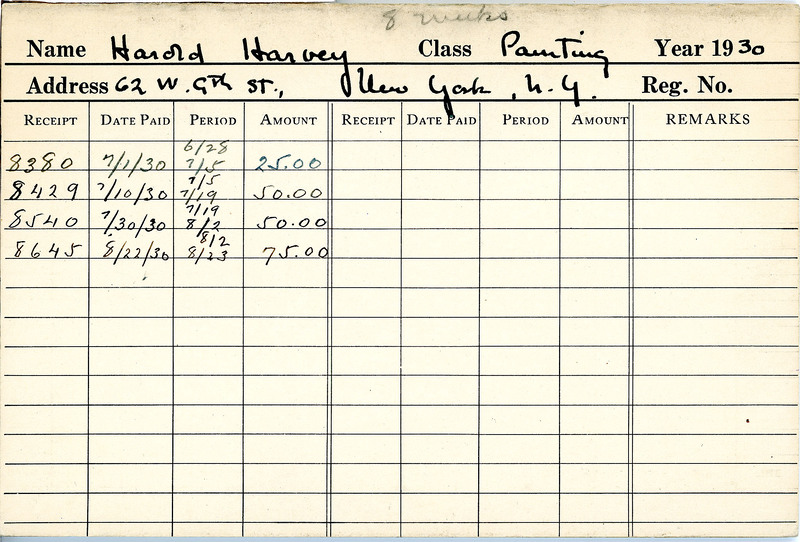 8 weeks
Name Harold Harvey Class Painting Year 1930
Address 62 W. 9th St., New York, N.Y. Reg. No.
RECEIPT DATE PAID PERIOD AMOUNT RECEIPT DATE PAID PERIOD AMOUNT REMARKS
6/28
8380 7/1/30 7/5 25.00
7/5
8429 7/10/30 7/19 50.00
7/19
8540 7/30/30 8/2 50.00
8/2
8645 8/22/30 8/23 75.00